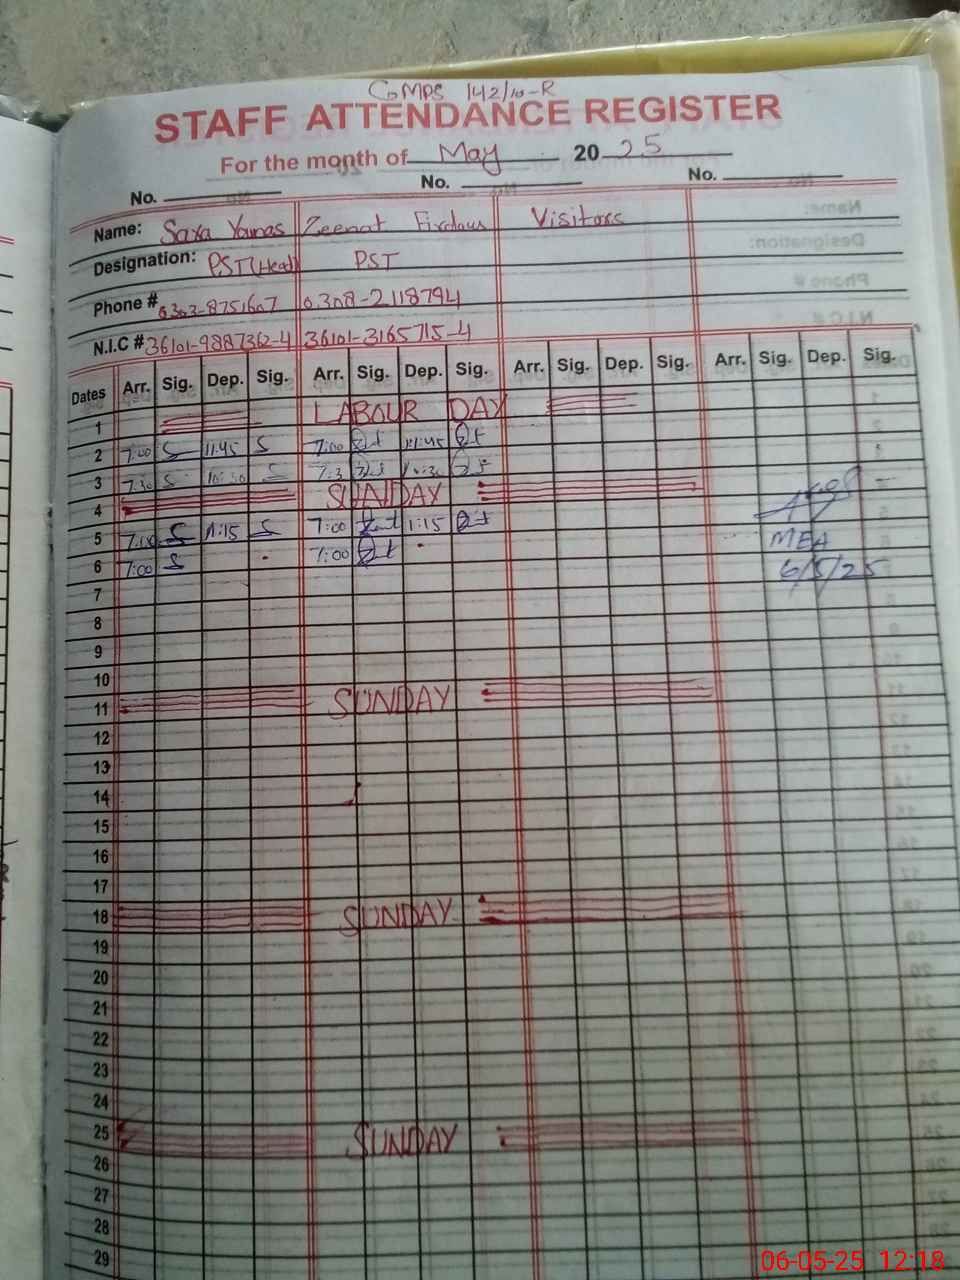 GMPS 142/10-R
STAFF ATTENDANCE REGISTER
For the month of May 20 25
No. No. No.
Name: Saxa Younas Zeenat Firdous Visitors
Designation: PST(Head) PST
Phone # 0303-8751607 0308-2118794
N.I.C # 36101-9887362-4 36101-3165715-4
Dates Arr. Sig. Dep. Sig. Arr. Sig. Dep. Sig. Arr. Sig. Dep. Sig. Arr. Sig. Dep. Sig.
1 LABOUR DAY
2 7:00 S 11:45 S 7:00 11:45
3 7:30 S 10:30 S 7:3 10:30
4 SUNDAY
5 7:00 S 1:15 S 7:00 1:15
MEA
6 7:00 S 7:00
6/5/25
7
8
9
10
11 SUNDAY
12
13
14
15
16
17
18 SUNDAY
19
20
21
22
23
24
25 SUNDAY
26
27
28
29
06-05-25 12:18